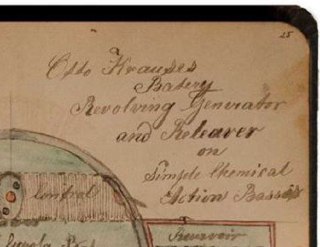 25
Otto Krauses
Batery
Revolving Generator
and Releaver
on
Simple Chemical
Action Bassis
Control
Reservoir